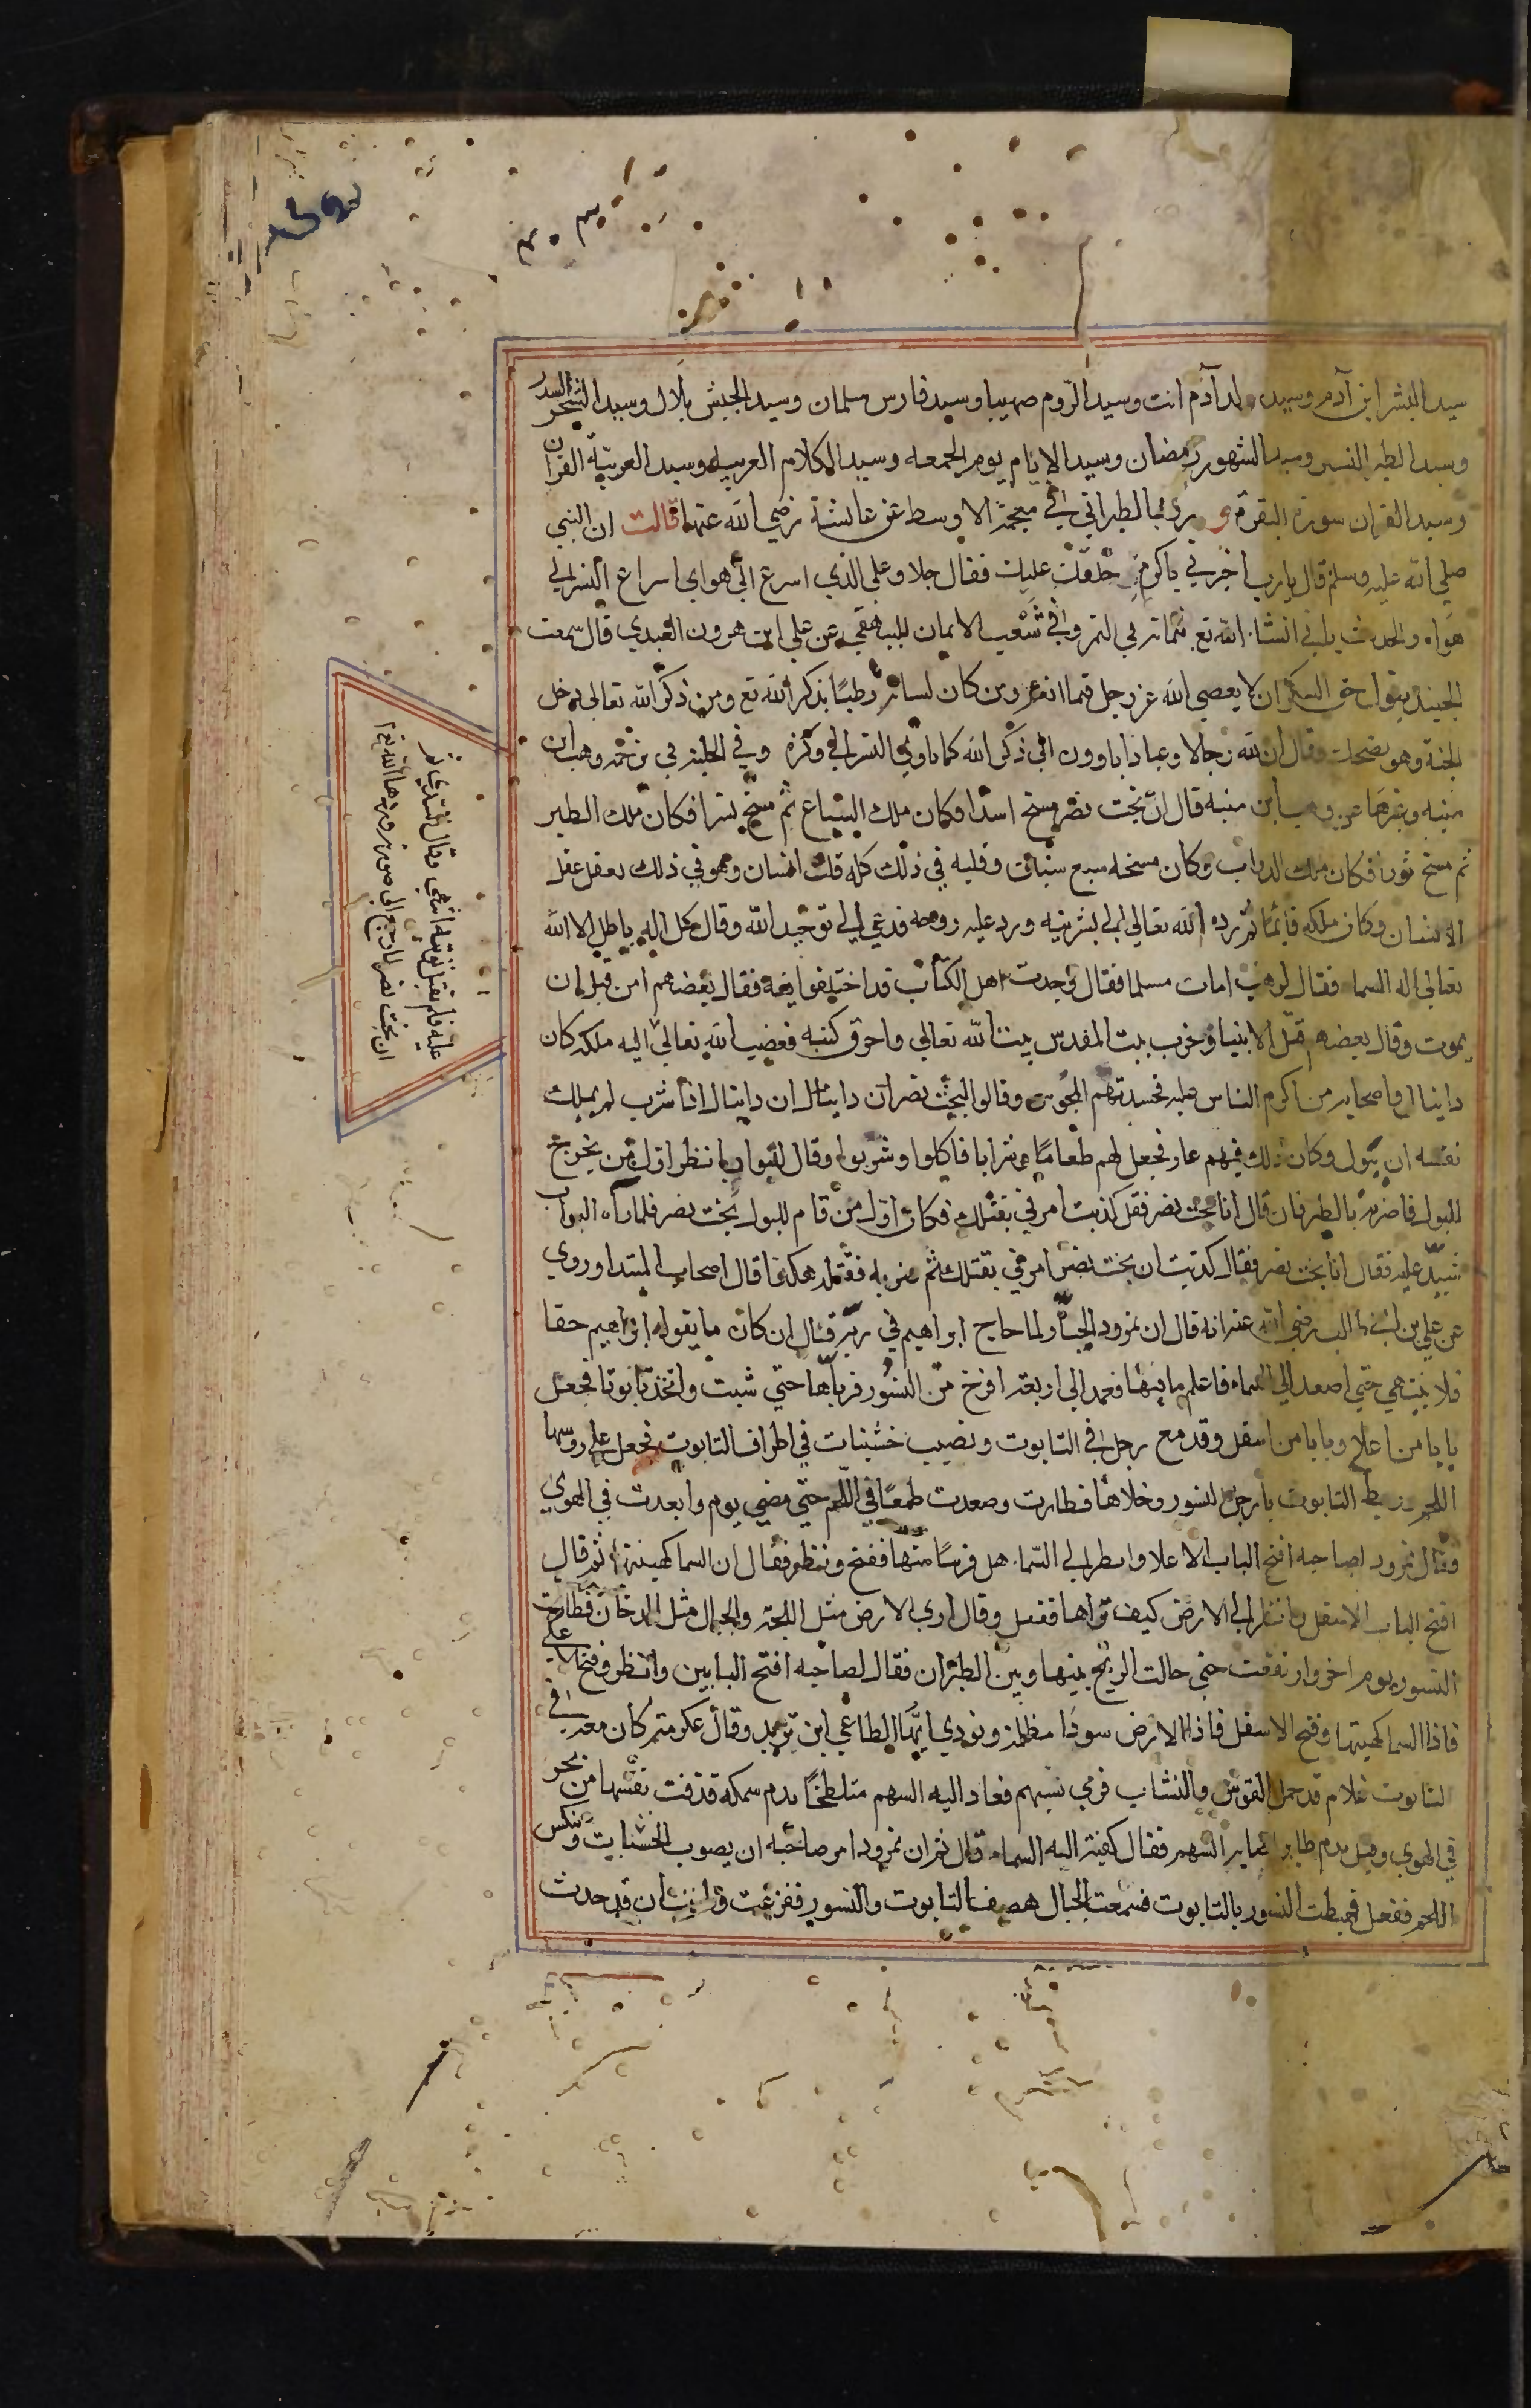 ٣٠٣
سيد البشر ابن آدم وسيد ولد آدم انت وسيد الرّوم صهيبا وسيد فارس سلمان وسيد الحبش بلال وسيد الشجر السدر
وسيد الطير النسر وسيد الشهور رمضان وسيد الايام يوم الجمعه وسيد الكلام العربيه وسيد العربيّة القران
وسيد القران سورة البقرة و روي الطبراني في معجمه الاوسط عن عائشة رضي الله عنها قالت ان النبي
صلي الله عليه وسلم قال يارب اخبرني باكرم خلقك عليك فقال جلا وعلي الذي اسرع الي هواي اسراع النسر الي
هواه والحديث ياتي انشا الله تع بتمامه في النمر وفي شعب الايمان للبيهقي عن علي ابن هرون العبدي قال سمعت
الجنيد يقول حق الشكر ان لا يعصي الله عز وجل فيما انعم ومن كان لسانه رطبًا بذكر الله تع ومن ذكر الله تعالى دخل
الجنة وهو يضحك وقال ان لله رجالا وعبادا ياوون الي ذكر الله كما ياوي النسر الي وكره وفي الحليه في ترجمه وهب ابن
منبه وغيرهما عن وهب ابن منبه قال انّ بخت نصر مسخ اسدا فكان ملك السباع ثم مسخ نسرا فكان ملك الطير
ثم مسخ ثورا فكان ملك الدواب وكان مسخه سبع سنين وقلبه في ذلك كله قلب انسان وهو في ذلك يعقل عقل
الانسان وكان ملكه قائما ثم رده الله تعالي الي بشريته ورد عليه روحه فدعي الي توحيد الله وقال كل اله باطل الا الله
تعالي اله السما فقال لوهب امات مسلما فقال وجدت اهل الكتاب قد اختلفوا فيه فقال بعضهم امن قبل ان
يموت وقال بعضهم قتل الانبيا وخرب بيت المقدس بيت الله تعالي واحرق كتبه فغضب الله تعالي اليه ملكه كان
دانيال واصحابه من اكرم الناس عليه فحسدتهم المجوس وقالوا لبخت نصر ان دانيال ان دانيال اذا شرب لم يملك
نفسه ان يبول وكان ذلك فيهم عار فجعل لهم طعامًا وشرابا فاكلوا وشربوا وقال للبواب انظر اول من يخرج
للبول فاضربه بالطبر فان قال انا بخت نصر فقل كذبت امرني بقتلك فكان اول من قام للبول بخت نصر فلما رآه البواب
شدّ عليه فقال انا بخت نصر فقال كذبت ان بخت نصر امرني بقتلك ثم ضربه فقتله هكذا قال اصحاب المبتدا وروي
عن علي بن ابي طالب رضي الله عنه انه قال ان نمرود الجبار لما حاج ابراهيم في ربه قال ان كان ما يقوله ابراهيم حقا
فلا ينتهي حتي اصعد الي السماء فاعلم ما فيها فعمد الي اربعه افرخ من النسور فرباها حتي شبت واتخذ تابوتا فجعل
بابا من اعلاه وبابا من اسفل وقد مع رجل في التابوت ونصب خشبات في اطراف التابوت فجعل علي روسها
اللحم وربط التابوت بارجل النسور وخلاها فطارت وصعدت طمعًا في اللّحم حتي مضي يوم وابعدت في الهوي
وقال نمرود لصاحبه افتح الباب الاعلا وانظر الي السّما هل قربنا منها ففتح ونظر فقال ان السما كهيئتها ثم قال
افتح الباب الاسفل وانظر الي الارض كيف تراها ففعل وقال اري الارض مثل اللجة والجبال مثل الدخان فطارت
النسور يوم اخر وارتفعت حتي حالت الريح بينها وبين الطيران فقال لصاحبه افتح البابين وانظر وفتح الاعلي
فاذا السما كهيئتها وفتح الاسفل فاذا الارض سودا مظلمة ونودي ايّها الطاغي اين تريد وقال عكرمة كان معه في
التابوت غلام قد حمل القوس والنشاب فرمي بسهم فعاد اليه السهم متلطخًا بدم سمكة قذفت نفسها من بحر
في الهوي وقيل بدم طاير اصابه السهم فقال كفيت اله السماء قال ثم ان نمرود امر صاحبه ان يصوب الخشبات وينكس
اللحم ففعل فهبطت النسور بالتابوت فسمعت الجبال هفيف التابوت والنسور ففزعت وظنت ان قد حدث
عليه فلم يقبل توبته انتهي وقال السّدي لم
ان بخت نصر لما رجع الي صورته ورد الله تع